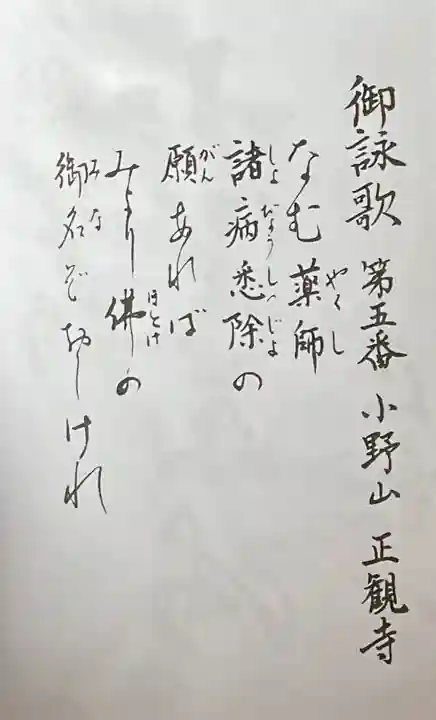 御詠歌 第五番 小野山 正観寺
やくし
なむ薬師
しょびょうしつじょ
諸病悉除の
がん
願あれば
ほとけ
みより佛の
みな
御名ぞおしけれ